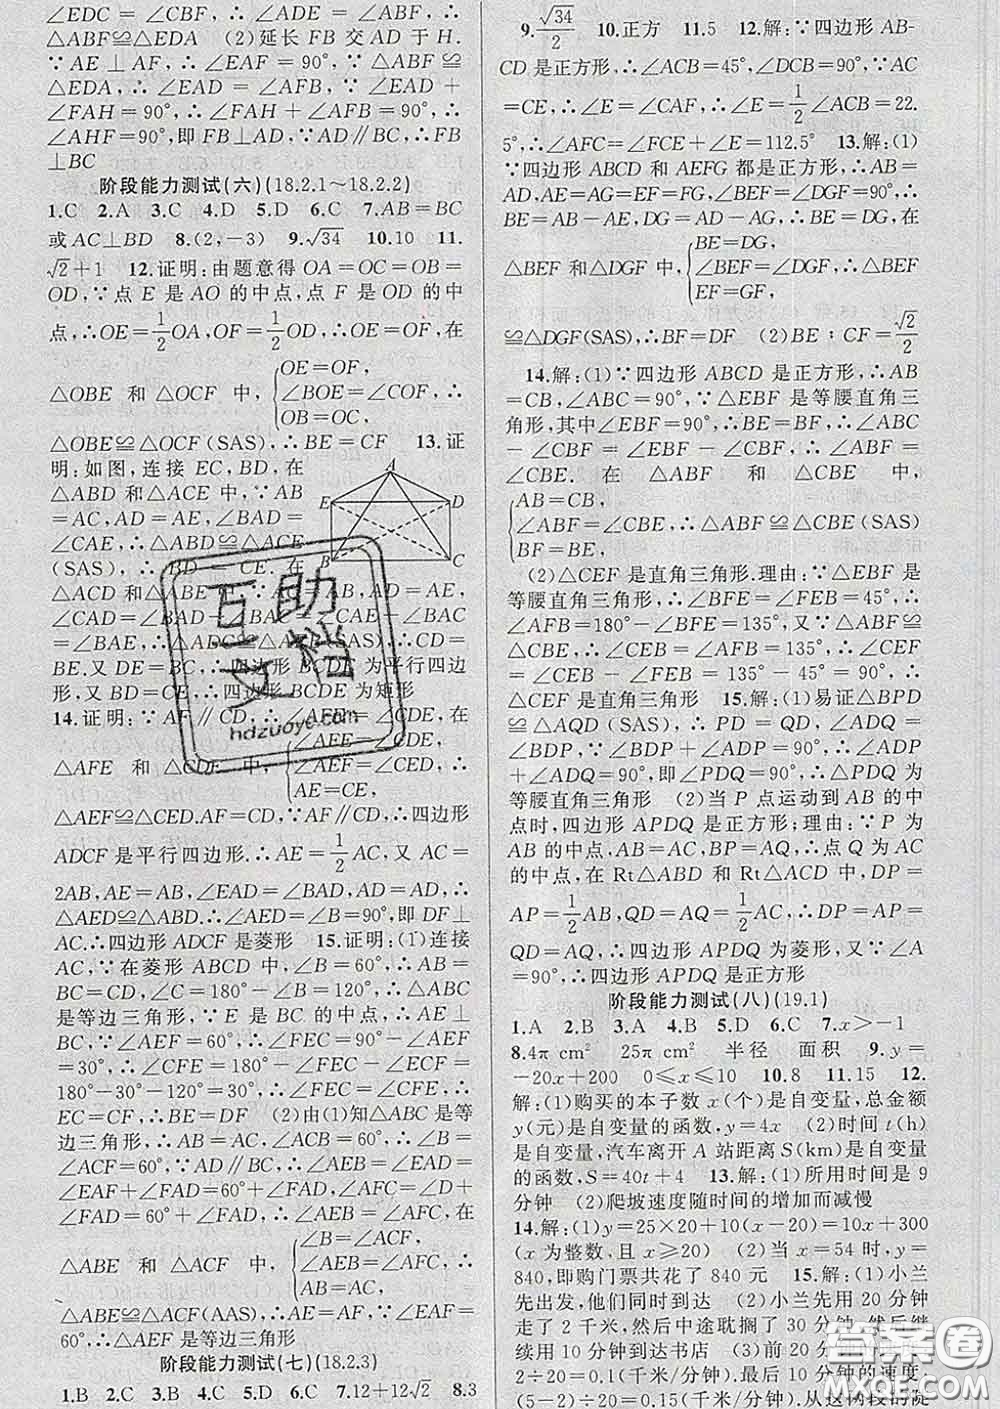 ∠EDC=∠CBF, ∴∠ADE=∠ABF, ∴
△ABF≌△EDA　(2)延长 FB 交 AD 于 H.
∵AE⊥AF, ∴∠EAF=90°, ∵△ABF≌
△EDA, ∴∠EAD=∠AFB, ∵∠EAD+
∠FAH=90°, ∴∠FAH+∠AFB=90°, ∴
∠AHF=90°,即 FB⊥AD, ∵AD∥BC, ∴FB
⊥BC
阶段能力测试(六)(18.2.1～18.2.2)
1.C　2.A　3.C　4.D　5.D　6.C　7.AB=BC
或AC⊥BD　8.(2,-3)　9.√34　10.10　11.
√2+1　12.证明:由题意得 OA=OC=OB=
OD,∵点 E 是 AO 的中点,点 F 是 OD 的中
点,∴OE=1/2OA,OF=1/2OD,∴OE=OF,在
△OBE 和 △OCF 中, {OE=OF,
∠BOE=∠COF, ∴
OB=OC,
△OBE≌△OCF(SAS),∴BE=CF　13.证
明:如图,连接 EC,BD,在
△ABD 和△ACE 中,∵AB
=AC,AD=AE,∠BAD=
∠CAE,∴△ABD≌△ACE
(SAS),∴BD=CE.在
△ACD 和△ABE
∠CAD=∠CAB=∠BAC
=∠BAE,∴△ADC≌(SAS),∴CD=
BE.又 DE=BC,∴四边形 BCDE 为平行四边
形,又 BD=CE,∴四边形BCDE 为矩形
14.证明:∵AF∥CD,∴∠AFE=∠CDE,在
△AFE 和 △CDE 中, {∠AFE=∠CDE,
∠AEF=∠CED, ∴
AE=CE,
△AEF≌△CED.AF=CD,∴四边形
ADCF 是平行四边形.∴AE=1/2AC,又 AC=
2AB,AE=AB,∠EAD=∠BAD,AD=AD,∴
△AED≌△ABD.∴∠AED=∠B=90°,即 DF⊥
AC.∴四边形 ADCF 是菱形　15.证明:(1)连接
AC,∵在菱形 ABCD 中,∠B=60°,∴AB=
BC=CD,∠C=180°-∠B=120°,∴△ABC
是等边三角形,∵E 是 BC 的中点,∴AE⊥
BC,∵∠AEF=60°,∴∠FEC=90°-∠AEF
=30°,∴∠CFE=180°-∠FEC-∠ECF=
180°-30°-120°=30°,∴∠FEC=∠CFE,∴
EC=CF,∴BE=DF　(2)由(1)知△ABC 是等
边三角形,∴AB=AC,∠ACB=60°,∴∠B=
∠ACF=60°,∵AD∥BC,∴∠AEB=∠EAD=
∠EAF+∠FAD=60°+∠FAD,∠AFC=∠D+
∠FAD=60°+∠FAD,∴∠AEB=∠AFC,在
△ABE 和 △ACF 中, {∠B=∠ACF,
∠AEB=∠AFC, ∴
AB=AC,
△ABE≌△ACF(AAS),∴AE=AF,∵∠EAF=
60°,∴△AEF 是等边三角形
阶段能力测试(七)(18.2.3)
1.B　2.C　3.B　4.C　5.D　6.C　7.12+12√2　8.3
9.√34/2　10.正方　11.5　12.解:∵四边形 AB-
CD 是正方形,∴∠ACB=45°,∠DCB=90°,∵AC
=CE,∴∠E=∠CAF,∴∠E=1/2∠ACB=22.
5°,∴∠AFC=∠FCE+∠E=112.5°　13.解:(1)
∵四边形 ABCD 和 AEFG 都是正方形,∴AB=
AD,AE=AG=EF=FG,∠BEF=∠DGF=90°,∴
BE=AB-AE,DG=AD-AG,∴BE=DG,在
△BEF 和△DGF 中, {BE=DG,
∠BEF=∠DGF,∴△BEF
EF=GF,
≌△DGF(SAS),∴BF=DF　(2)BE∶CF=√2/2
14.解:(1)∵四边形 ABCD 是正方形,∴AB
=CB,∠ABC=90°,∵△EBF 是等腰直角三
角形,其中∠EBF=90°,∴BE=BF,∴∠ABC
-∠CBF=∠EBF-∠CBF,∴∠ABF=
∠CBE.在 △ABF 和 △CBE 中,
{AB=CB,
∠ABF=∠CBE,∴△ABF≌△CBE(SAS)
BF=BE,
(2)△CEF 是直角三角形.理由:∵△EBF 是
等腰直角三角形,∴∠BFE=∠FEB=45°,∴
∠AFB=180°-∠BFE=135°,∵又△ABF≌
△CBE,∴∠CEB=∠AFB=135°,∴∠CEF
=∠CEB-∠FEB=135°-45°=90°,∴
△CEF 是直角三角形　15.解:(1)易证△BPD
≌△AQD(SAS),∴PD=QD,∠ADQ=
∠BDP,∵∠BDP+∠ADP=90°,∴∠ADP
+∠ADQ=90°,即∠PDQ=90°,∴△PDQ 为
等腰直角三角形　(2)当 P 点运动到 AB 的中
点时,四边形 APDQ 是正方形;理由:∵P 为
AB 的中点,AB=AC,BP=AQ,∴点 Q 为 AC
的中点,在 Rt△ABD 和 Rt△ACD 中,DP=
AP=1/2AB,QD=AQ=1/2AC,∴DP=AP=
QD=AQ,∴四边形 APDQ 为菱形,又∵∠A
=90°,∴四边形 APDQ 是正方形
阶段能力测试(八)(19.1)
1.A　2.B　3.A　4.B　5.D　6.C　7.x>-1
8.4π cm²　25π cm²　半径　面积　9.y=
-20x+200　0≤x≤10　10.8　11.15　12.
解:(1)购买的本子数 x(个)是自变量,总金额
y(元)是自变量的函数,y=4x　(2)时间 t(h)
是自变量,汽车离开 A 站距离 S(km)是自变量
的函数,S=40t+4　13.解:(1)所用时间是 9
分钟　(2)爬坡速度随时间的增加而减慢
14.解:(1)y=25×20+10(x-20)=10x+300
(x 为整数,且 x≥20)　(2)当 x=54 时,y=
840,即购门票共花了 840 元　15.解:(1)小兰
先出发,他们同时到达　(2)小兰先用 20 分钟
走了 2 千米,然后中途耽搁了 30 分钟,然后继
续用 10 分钟到达书店　(3)前 20 分
2÷20=0.1(千米/分钟),最后 10 分钟的速度,
(5-2)÷20=0.15(千米/分钟),从这两段的
A
E
D
B
C
互助文档
hdzuoye.com
答案圈
MXQE.COM